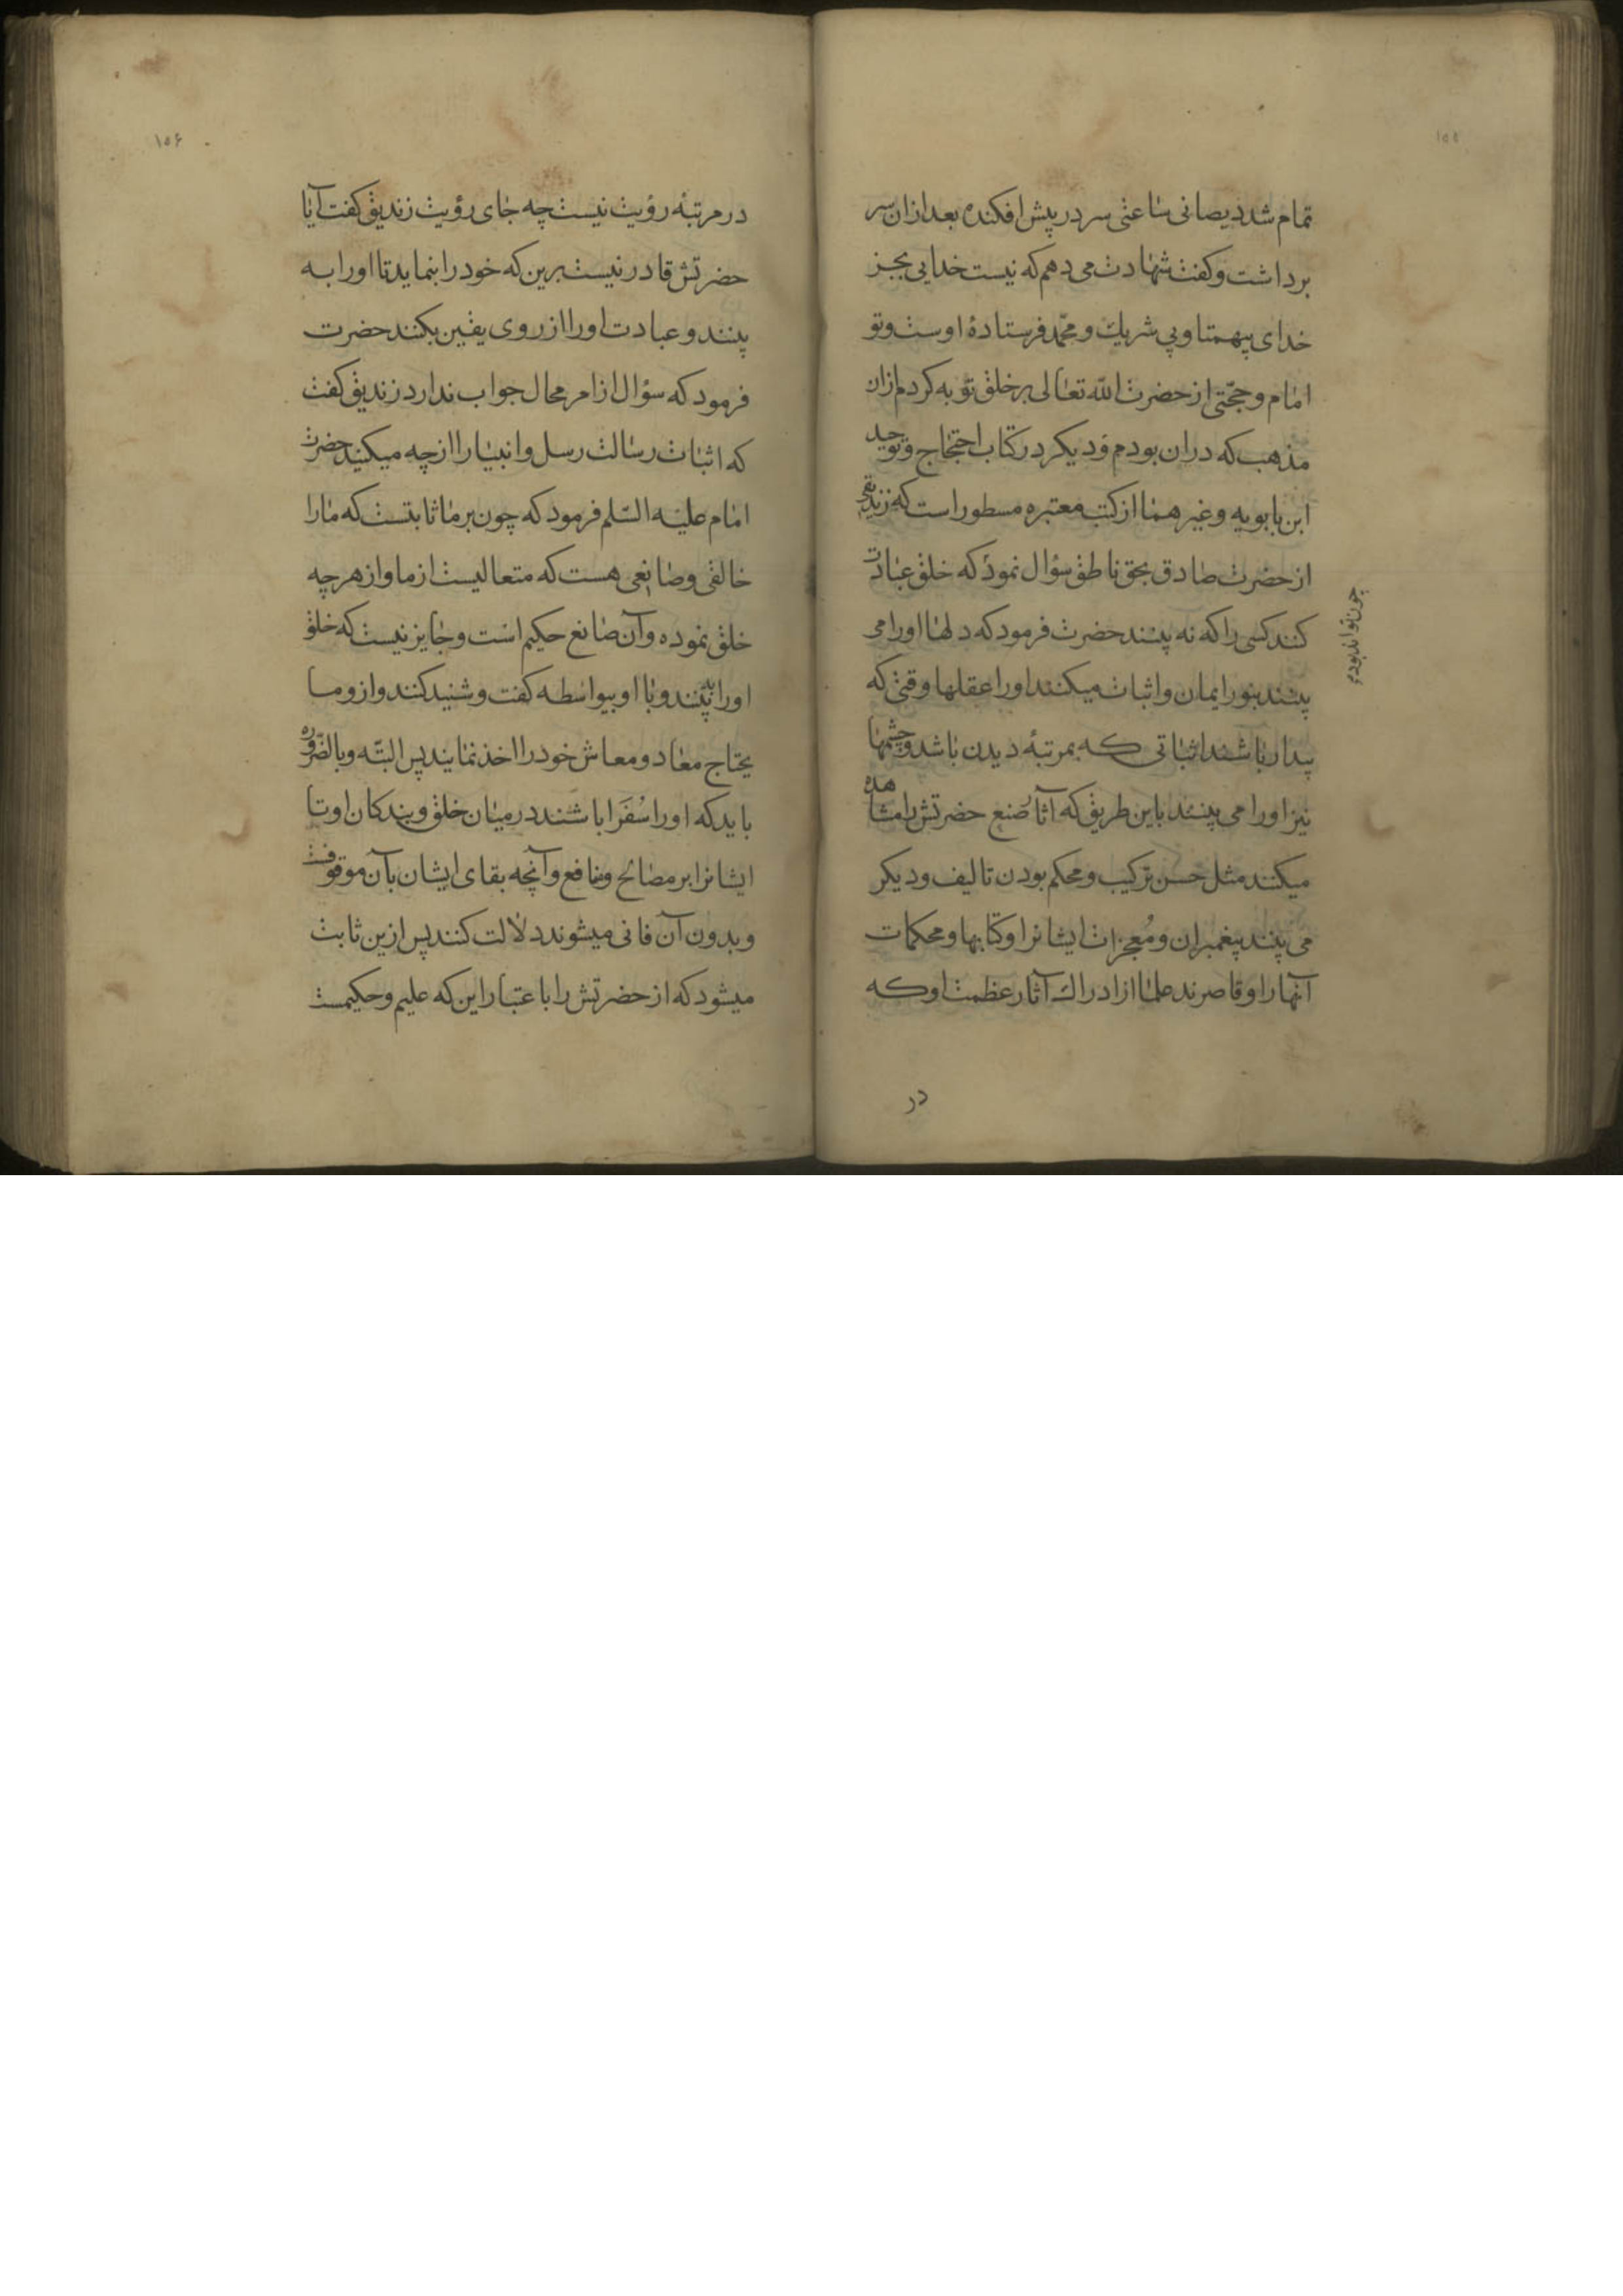 ۱۵۵
تمام شد دیصانی ساعتی سر در پیش افکنده بعد ازان سر
برداشت و کفت شهادت می دهم که نیست خدایی بجز
خدای بیهمتا و بی شریك و محمّد فرستادهٔ اوست و تو
امام و حجّتی از حضرت الله تعالی بر خلق توبه کردم ازان
مذهب که دران بودم و دیکر در کتاب احتجاج و توحید
ابن بابویه و غیرهما از کتب معتبره مسطور است که زندیقی
از حضرت صادق بحق ناطق سؤال نمود که خلق عبادت
چون تواند بود
کنند کسی را که نه بینند حضرت فرمود که دلها او را می
بینند بنور ایمان و اثبات میکنند او را عقلها وقتی که
بیدار باشند اثباتی که بمرتبهٔ دیدن باشد و چشمها
نیز او را می بینند باین طریق که آثار صُنع حضرتش را مشاهده
میکنند مثل حسن ترکیب و محکم بودن تالیف و دیکر
می بینند پیغمبران و مُعجزات ایشانرا و کتابها و محکمات
آنها را و قاصرند علما از ادراك آثار عظمت او که
در
۱۵۶
در مرتبهٔ رؤیت نیست چه جای رؤیت زندیق کفت آیا
حضرتش قادر نیست برین که خود را بنماید تا او را به
بینند و عبادت او را از روی یقین بکنند حضرت
فرمود که سؤال از امر محال جواب ندارد زندیق کفت
که اثبات رسالت رسل و انبیا را از چه میکنید حضرت
امام علیه السّلم فرمود که چون بر ما ثابتست که ما را
خالقی و صانعی هست که متعالیست از ما و از هر چه
خلق نموده و آن صانع حکیم است و جایز نیست که خلق
او را به بینند و با او بیواسطه کفت و شنید کنند و ازو ما
یحتاج معاد و معاش خود را اخذ نمایند پس البتّه و بالضّروره
باید که او را سُفَرا باشند در میان خلق و بندکان او تا
ایشانرا بر مصالح و منافع و آنچه بقای ایشان بآن موقوفست
و بدون آن فانی میشوند دلالت کنند پس ازین ثابت
میشود که از حضرتش را با عتبار این که علیم و حکیمست